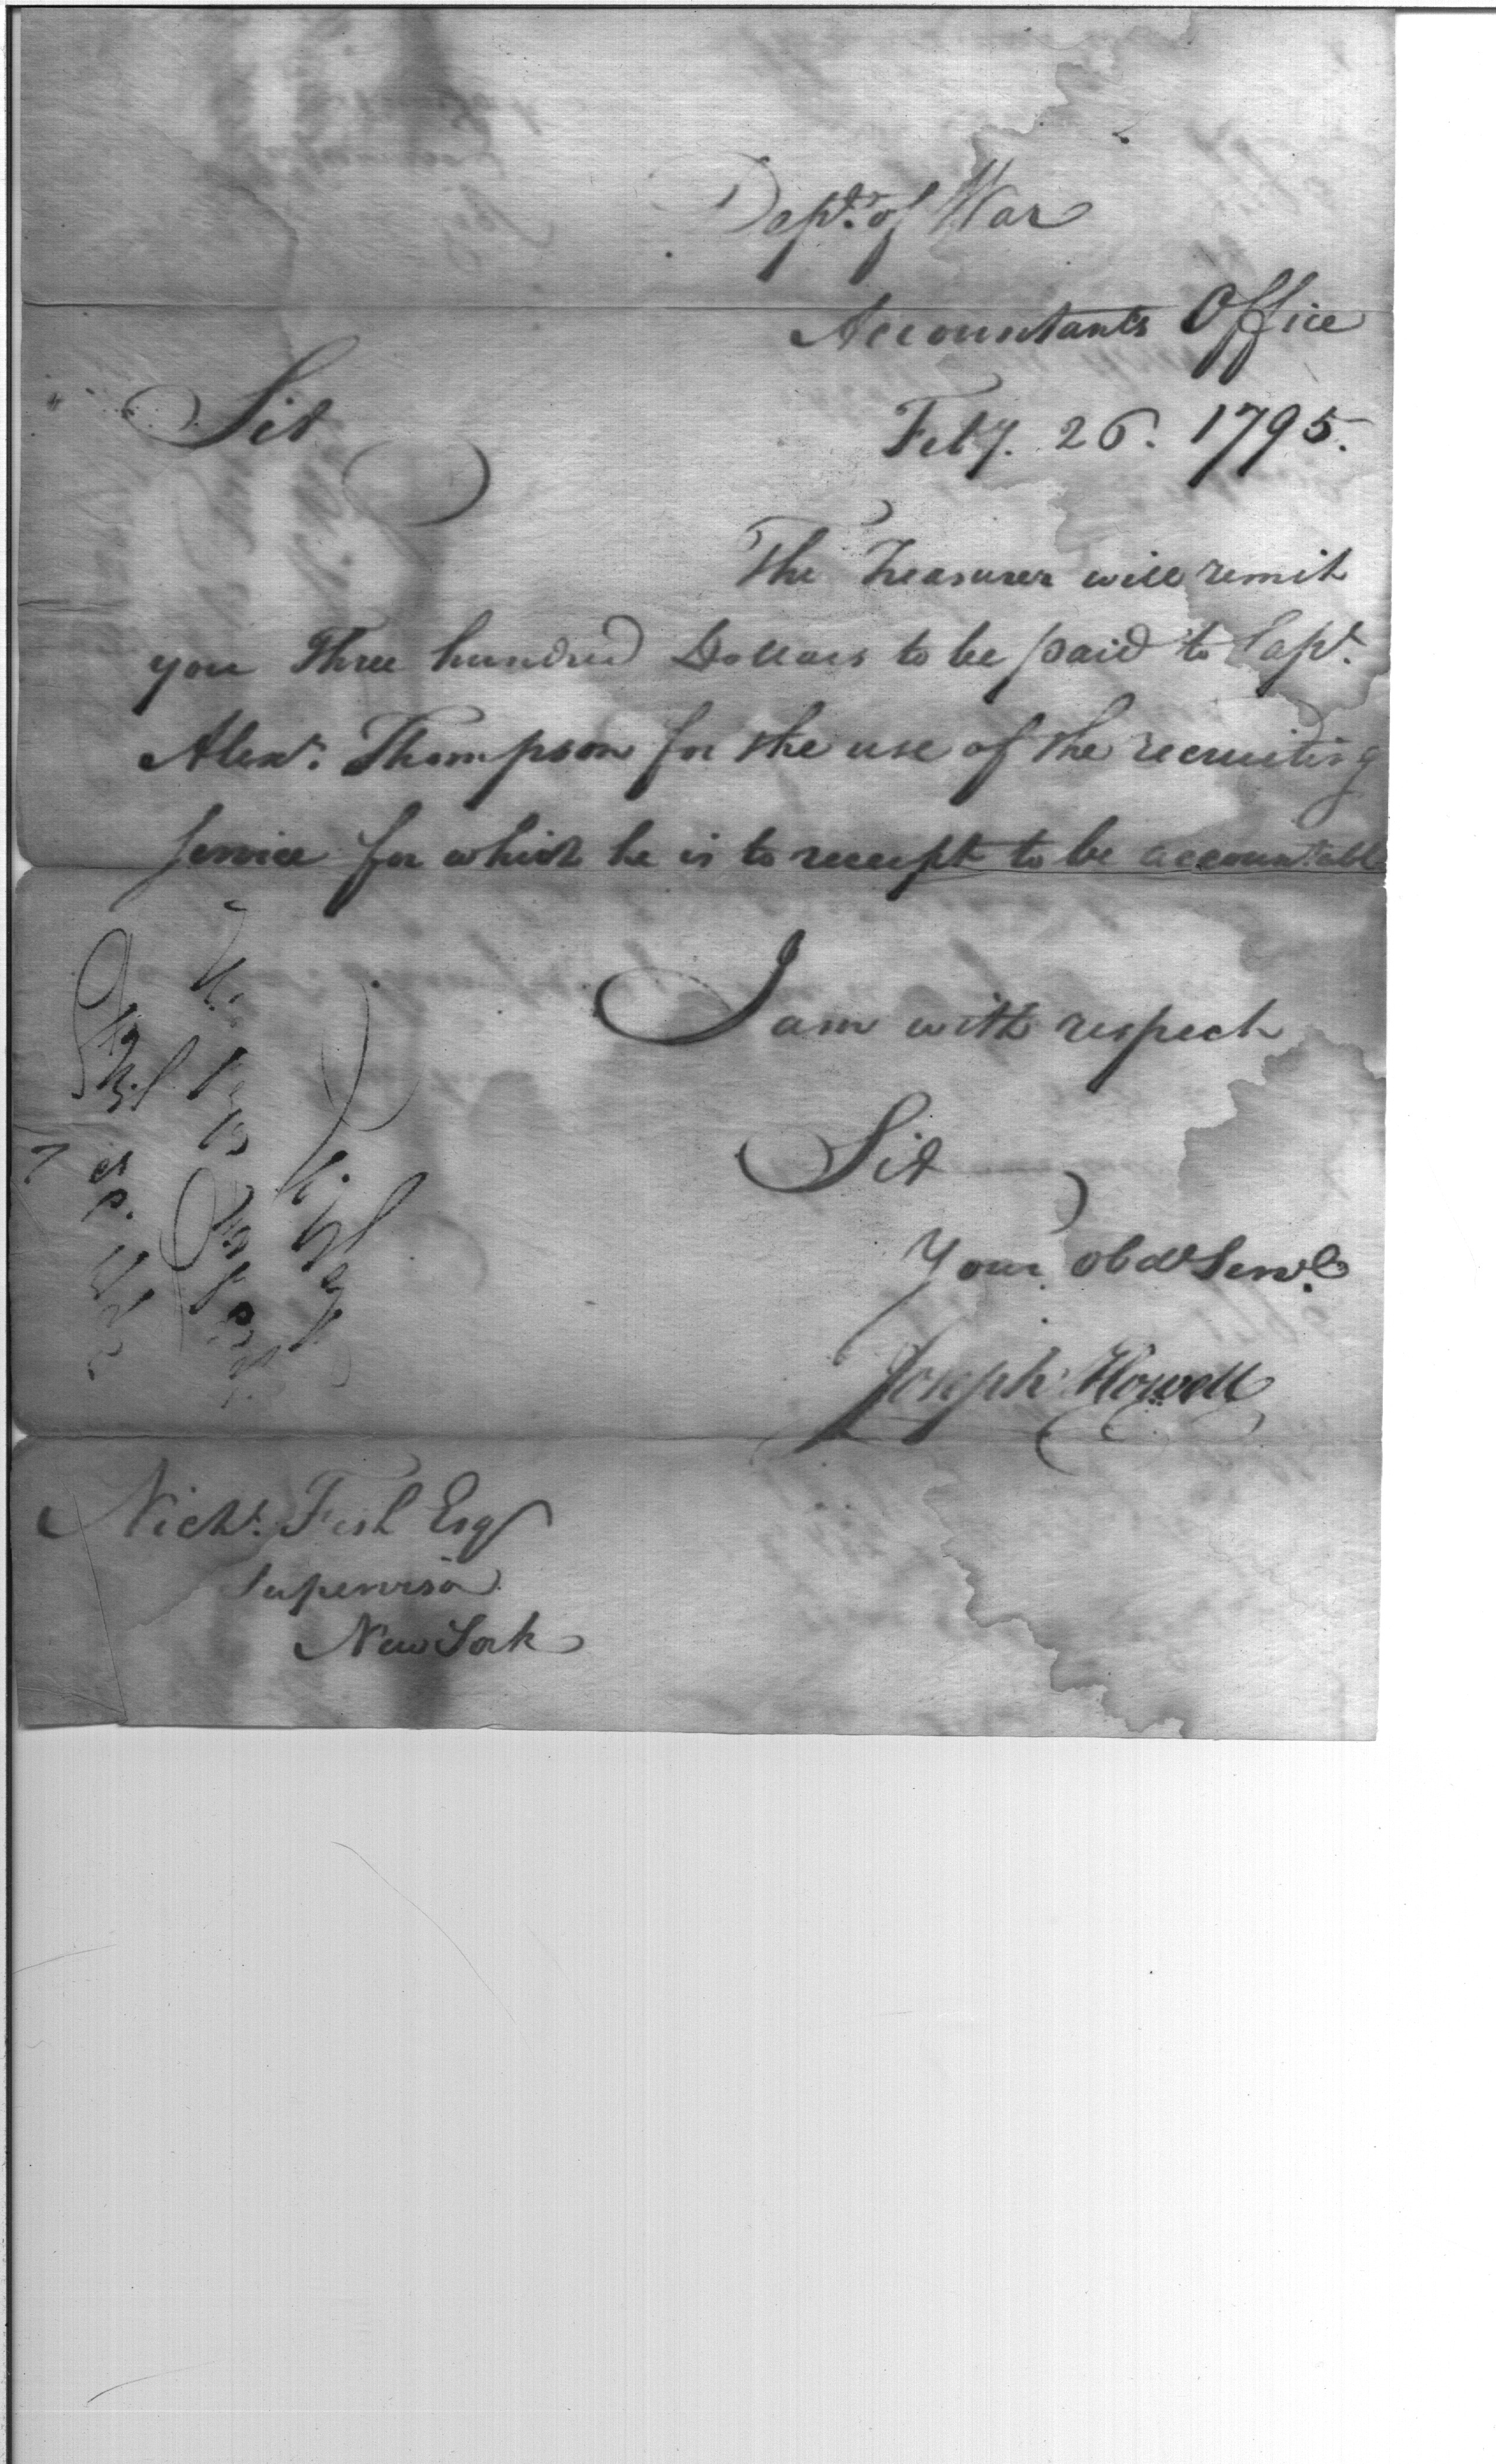 Dept. of War
Accountants Office
Feby. 26. 1795.
Sir
The Treasurer will remit
you Three hundred Dollars to be paid to Capt.
Alexr. Thompson for the use of the recruiting
Service for which he is to receipt to be accountable
I am with respect
Sir
Your obdt Servt.
Joseph Howell
Nichs. Fish Esq
Supervisor
New York